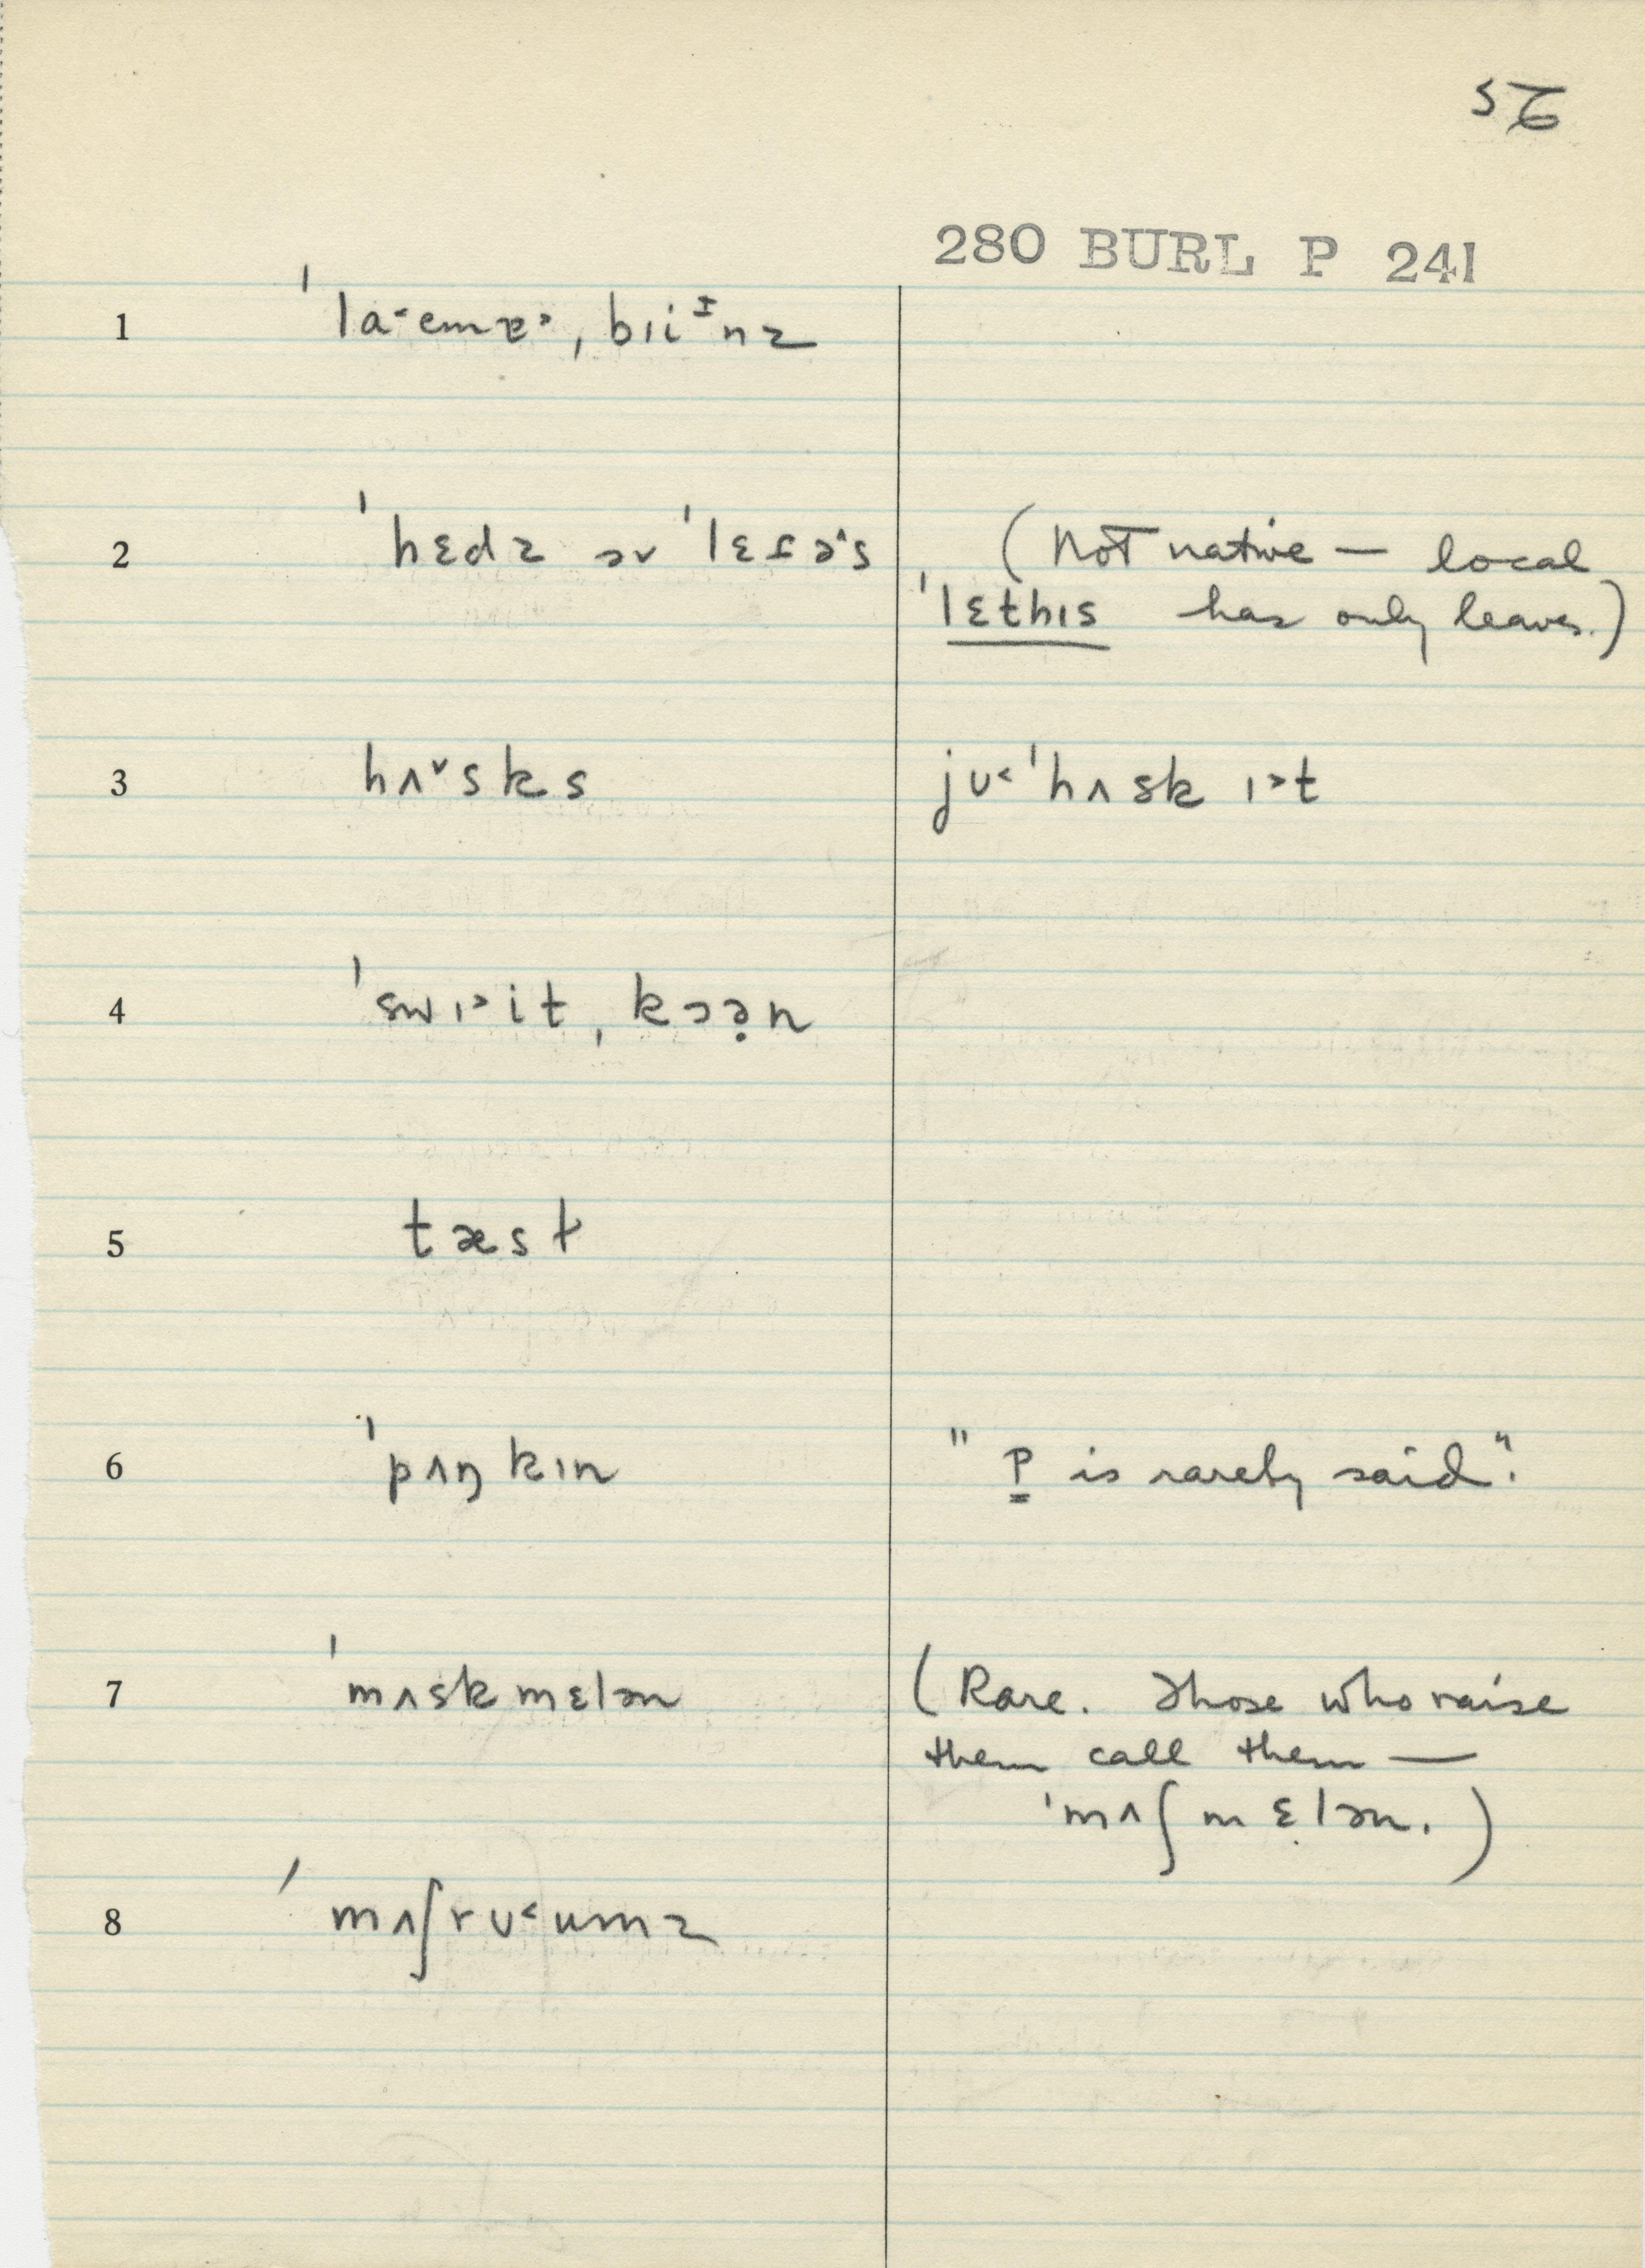 56
280 BURL P 241
1 ˈlaˑemɐ˃ˌbɪiᶦnz
2 ˈhɛdz əv ˈlɛɾə^s (Not native — local
ˈlɛthɪs has only leaves.)
3 hʌ˅sks jʊ˂ˈhʌsk ɪ˃t
4 ˈswɪ˃itˌkɔə̣n
5 tæst
6 ˈpʌŋkɪn "P is rarely said".
7 ˈmʌskmɛlən (Rare. Those who raise
them call them —
ˈmʌʃmɛlən.)
8 ˈmʌʃrʊ˂umz